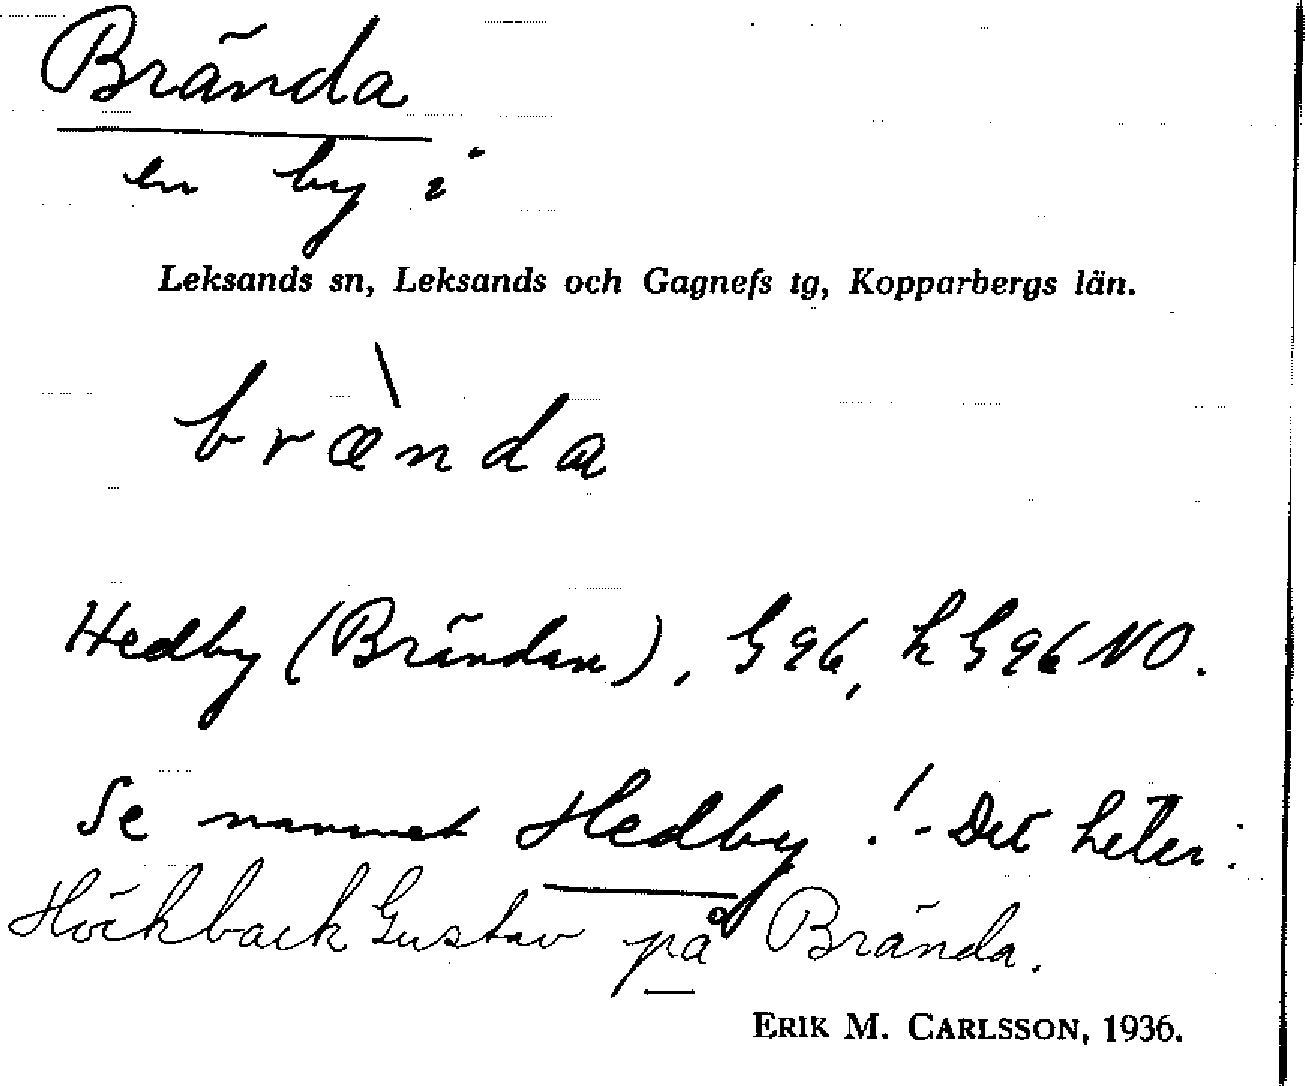 Brända
en by i
Leksands sn, Leksands och Gagnefs tg, Kopparbergs län.
bræ̀nda
Hedby (Brändan), G 96, h G 96 NO.
Se namnet Hedby! - Det heter:
Höckback Gustav på Brända.
ERIK M. CARLSSON, 1936.